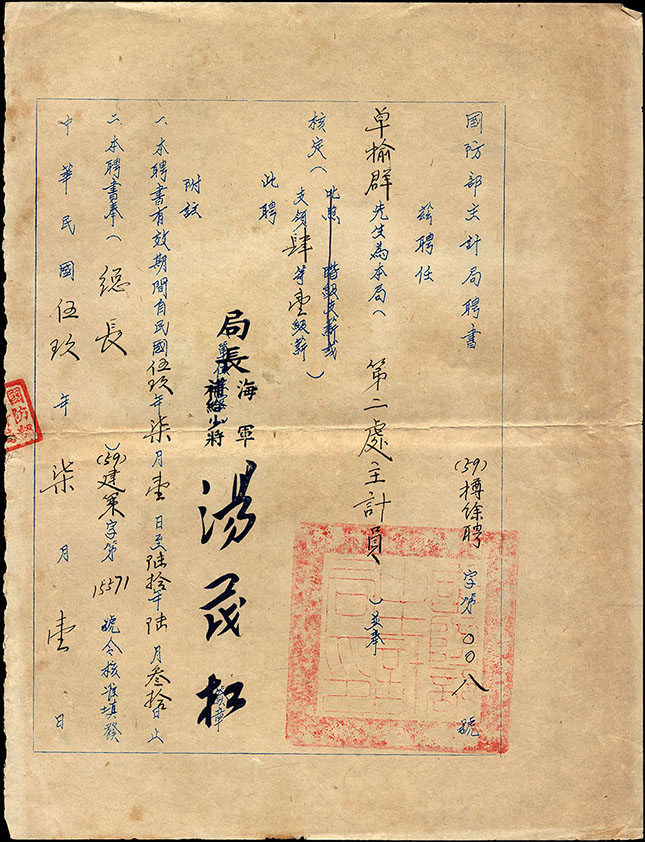 國防部主計局聘書
(59)樽餘聘字第〇〇八號
茲聘任
卓榆群先生為本局(第二處主計員)並奉
核定(比照 階級支薪或
支領肆等壹級薪)
此聘
局長海軍
少將湯茂松
附註
一、本聘書有效期間自民國伍玖年柒月壹日至陸拾年陸月叁拾日止
二、本聘書奉(總長)(59)建策字第15571號令核准填發
中華民國伍玖年柒月壹日
國防部